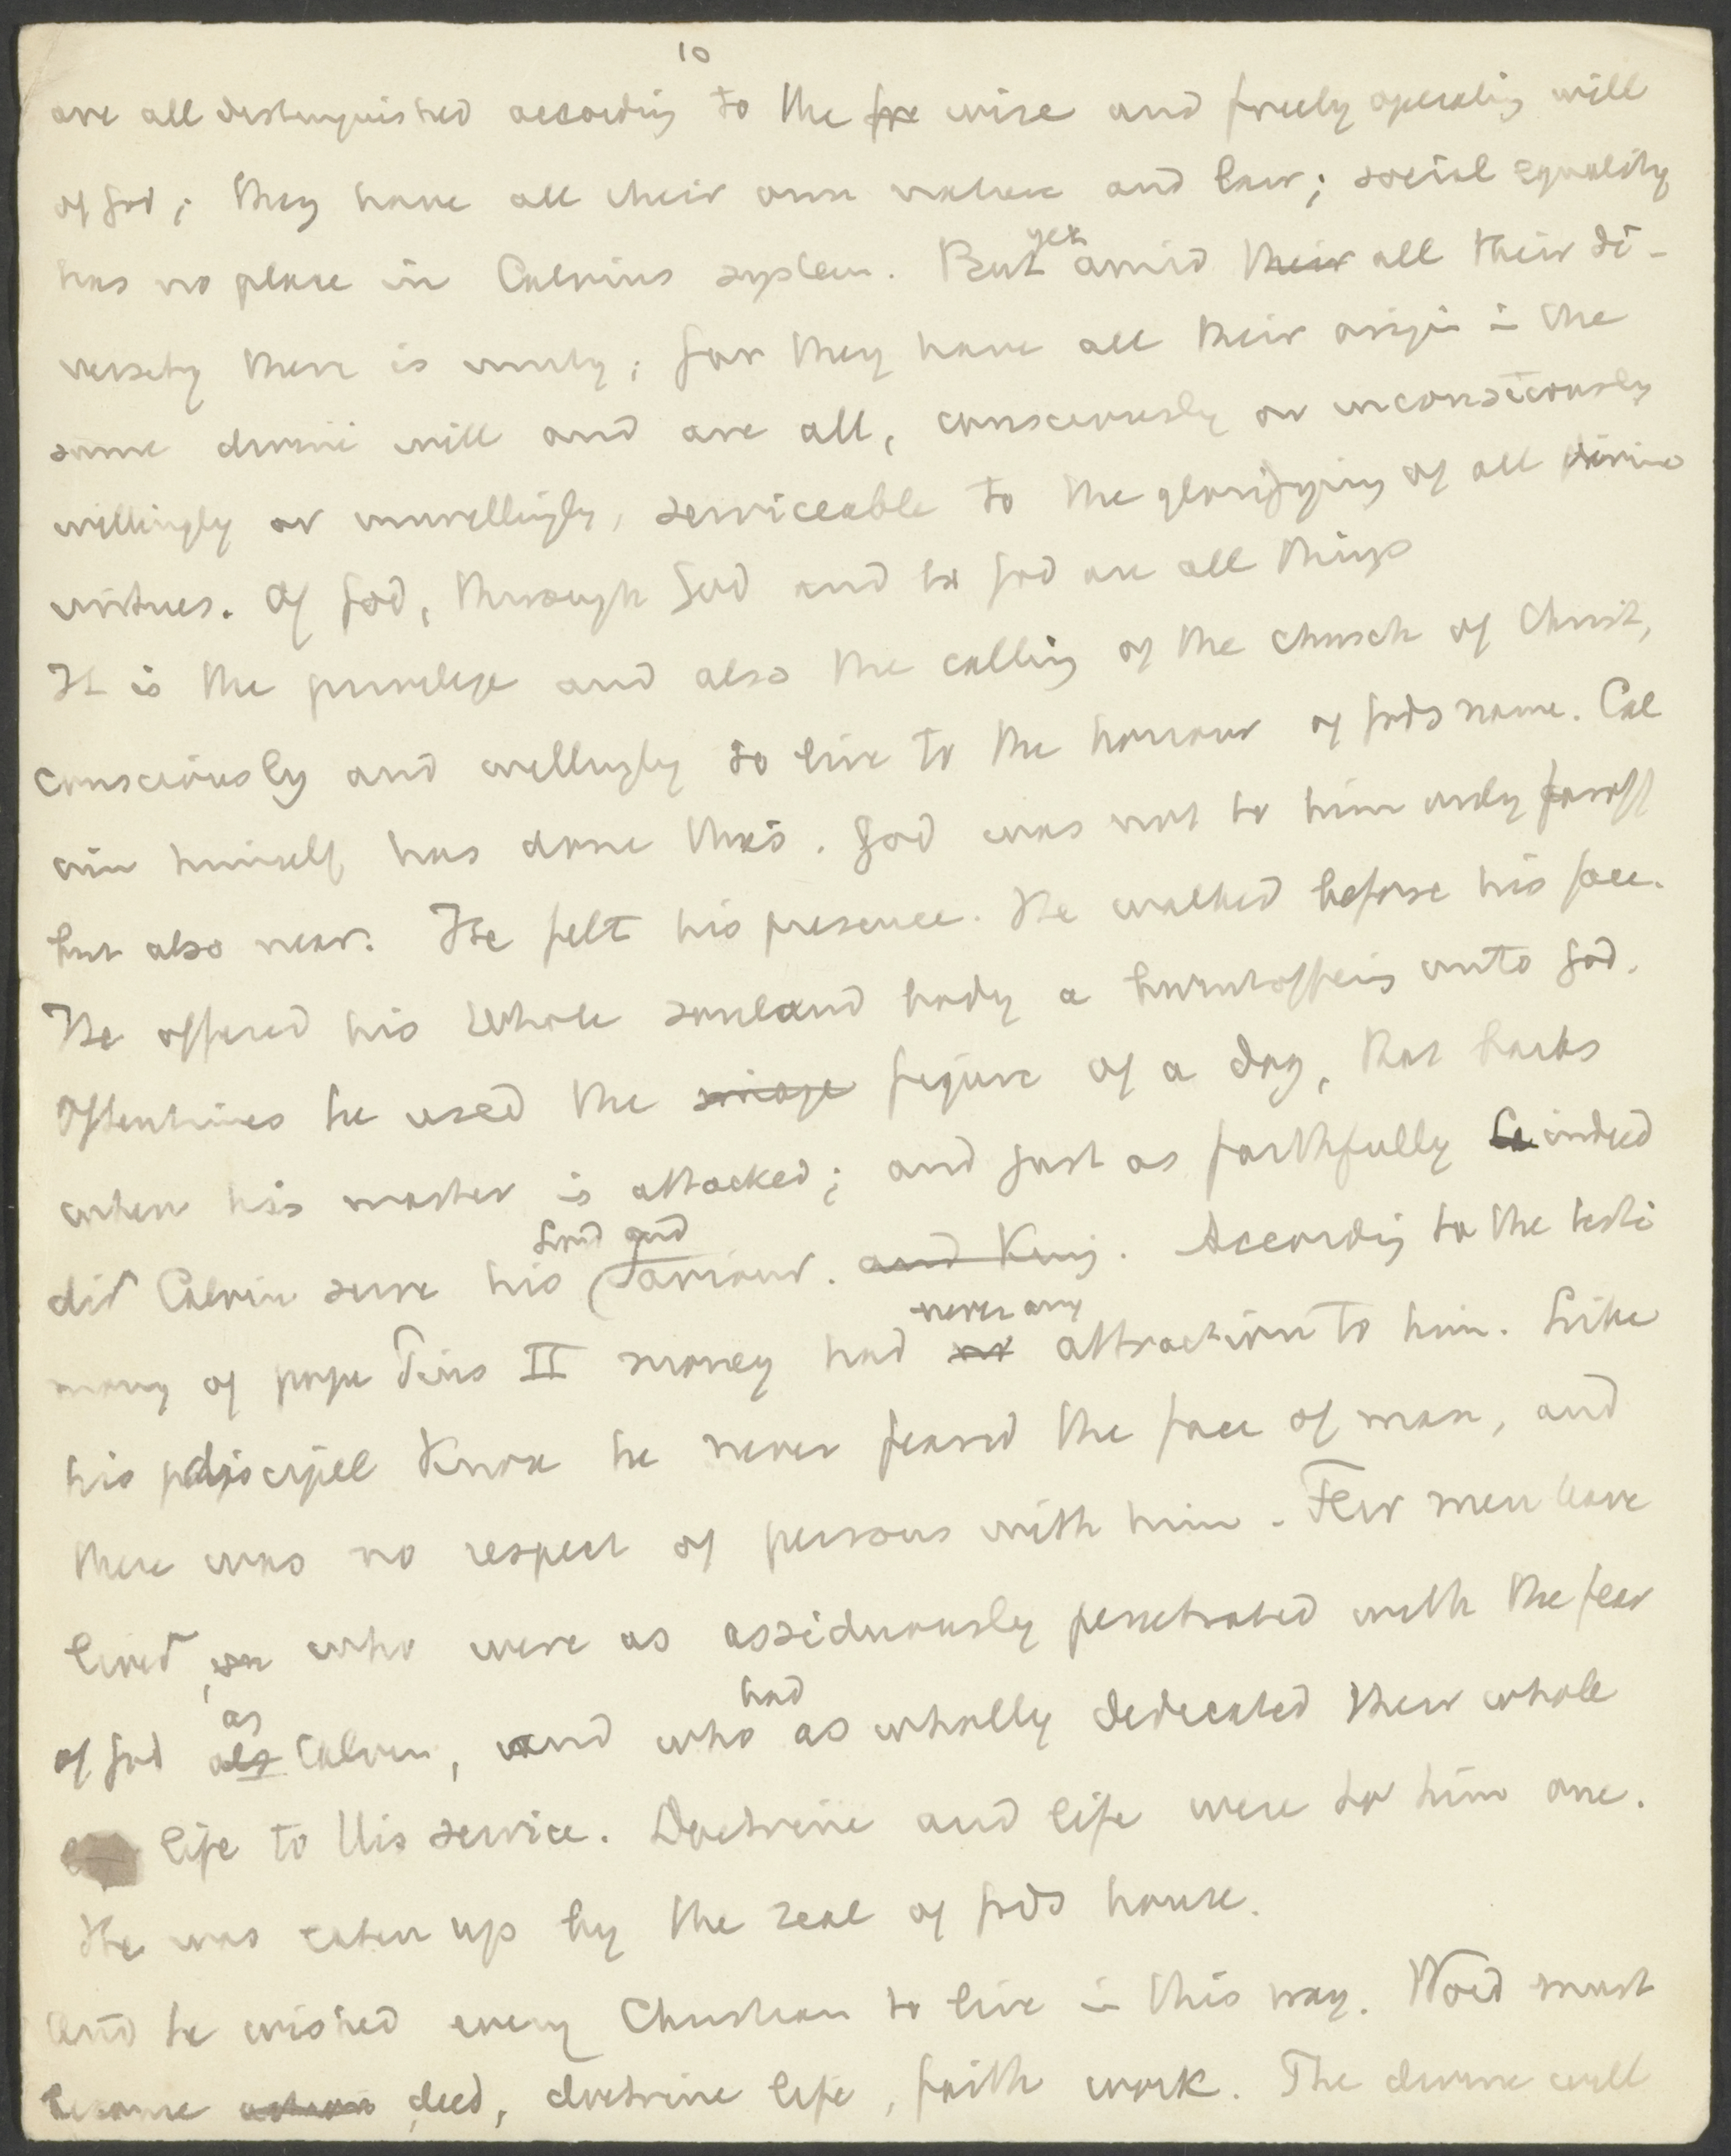 10
are all distinguished according to the fre wise and freely operating will
of God; they have all their own nature and law; social equality
has no place in Calvins system. But yet amid their all their di-
versity there is unity; for they have all their origin in the
same divine will and are all, consciously or unconsciously
willingly or unwillingly, serviceable to the glorifying of all divine
virtues. Of God, through God and to God are all things
It is the privilege and also the calling of the church of Christ,
consciously and willingly to live to the honour of Gods name. Cal
vin himself has done this. God was not to him only faroff
but also near. He felt his presence. He walked before his face.
He offered his whole soul and body a burntoffering unto God.
Oftentimes he used the image figure of a dog, that barks
when his master is attacked; and just as faithfully indeed
did Calvin serve his Lord and Saviour. and King. According to the testi
mony of pope Pius II money had no never any attraction to him. Like
his discipel Knox he never feared the face of man, and
there was no respect of persons with him. Few men have
lived, who were as assiduously penetrated with the fear
of God als as Calvin, and who had as wholly dedicated their whole
life to His service. Doctrine and life were to him one.
He was eaten up by the zeal of Gods house.
And he wished every Christian to live in this way. Word must
become deed, doctrine life, faith work. The divine will